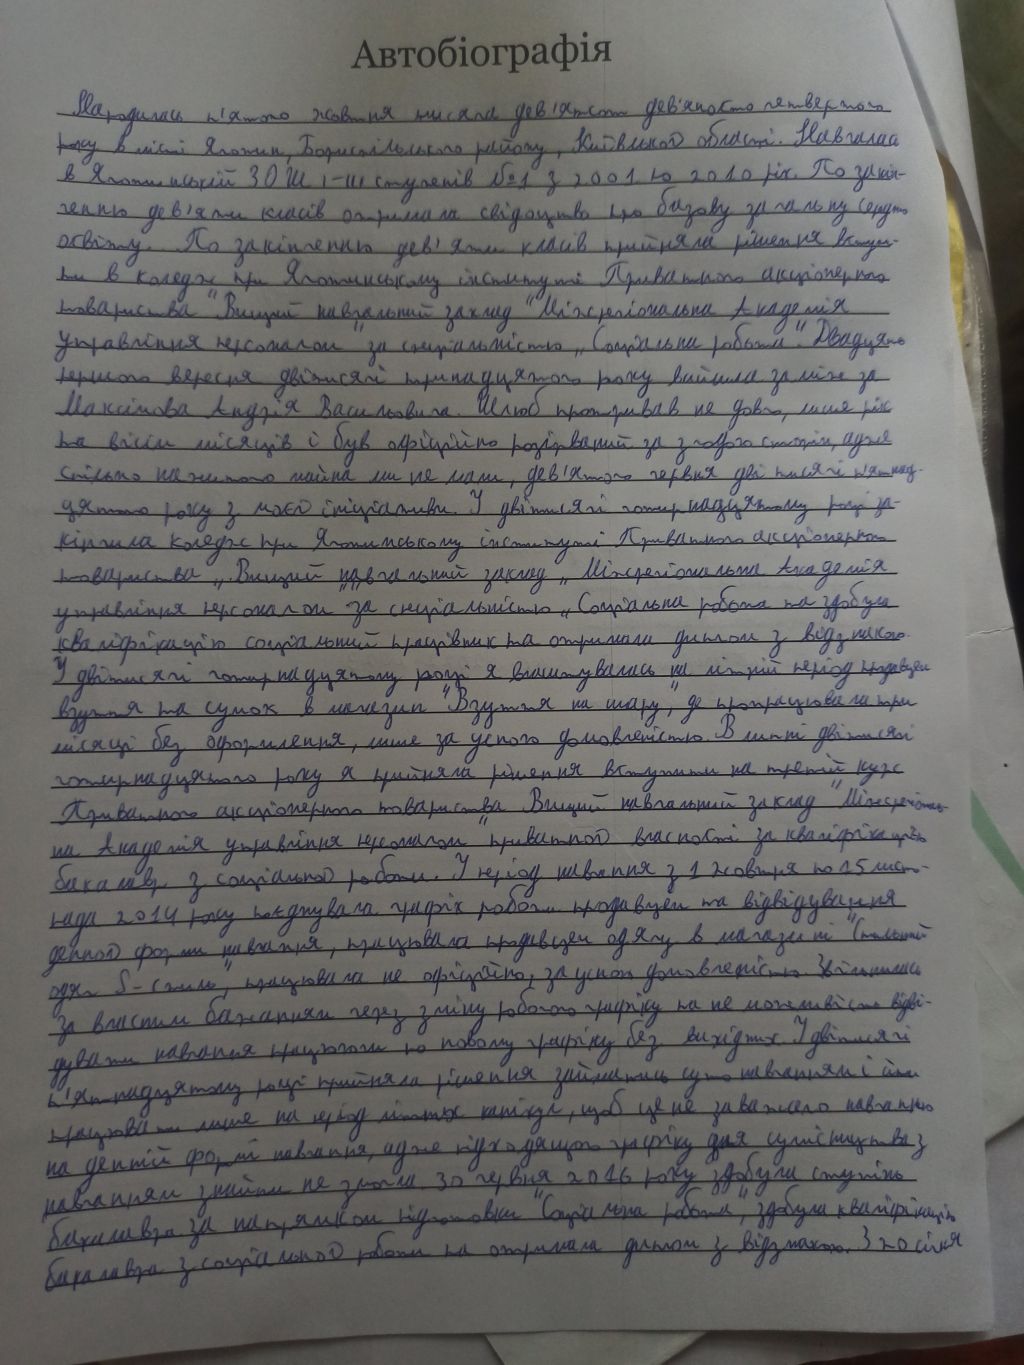 Автобіографія
Народилась п'ятого жовтня тисяча дев'ятсот дев'яносто четвертого
року в місті Яготин, Бориспільського району, Київської області. Навчалась
в Яготинській ЗОШ І-ІІІ ступенів №1 з 2001 по 2010 рік. По закін-
ченню дев'яти класів отримала свідоцтво про базову загальну середню
освіту. По закінченню дев'яти класів прийняла рішення вступи-
ти в коледж при Яготинському інституті Приватного акціонерного
товариства "Вищий навчальний заклад "Міжрегіональна Академія
управління персоналом" за спеціальністю „Соціальна робота". Двадцять
першого вересня двітисячі тринадцятого року вийшла заміж за
Максімова Андрія Васильовича. Шлюб протривав не довго, лише рік
та вісім місяців і був офіційно розірваний за згодою сторін, адже
спільно нажитого майна ми не мали, дев'ятого червня дві тисячі п'ятнад-
цятого року з моєї ініціативи. У двітисячі чотирнадцятому році за-
кінчила коледж при Яготинському інституті Приватного акціонерного
товариства „Вищий навчальний заклад „Міжрегіональна Академія
управління персоналом" за спеціальністю „Соціальна робота та здобула
кваліфікацію соціальний працівник та отримала диплом з відзнакою.
У двітисячі чотирнадцятому році я влаштувалась на літній період продавцем
взуття та сумок в магазин "Взуття на шару", де пропрацювала три
місяці без оформлення, лише за усною домовленістю. В липні двітисячі
чотирнадцятого року я прийняла рішення вступити на третій курс
Приватного акціонерного товариства "Вищий навчальний заклад "Міжрегіональ-
на Академія управління персоналом" приватної власності за кваліфікацією
бакалавр з соціальної роботи. У період навчання з 1 жовтня по 15 листо-
пада 2014 року поєднувала графік роботи продавцем та відвідування
денної форми навчання, працювала продавцем одягу в магазині "Стильний
одяг S-стиль", працювала не офіційно, за усною домовленістю. Звільнилась
за власним бажанням через зміну робочого графіку та не можливість відві-
дувати навчання працюючи по новому графіку без вихідних. У двітисячі
п'ятнадцятому році прийняла рішення займатись суто навчанням і
працювати лише на період літніх канікул, щоб це не заважало навчанню
на денній формі навчання, адже підходящого графіку для сумісництва з
навчанням знайти не змогла. 30 червня 2016 року здобула ступінь
бакалавра за напрямком підготовки "Соціальна робота", здобула кваліфікацію
бакалавра з соціальної роботи та отримала диплом з відзнакою. З 20 січня